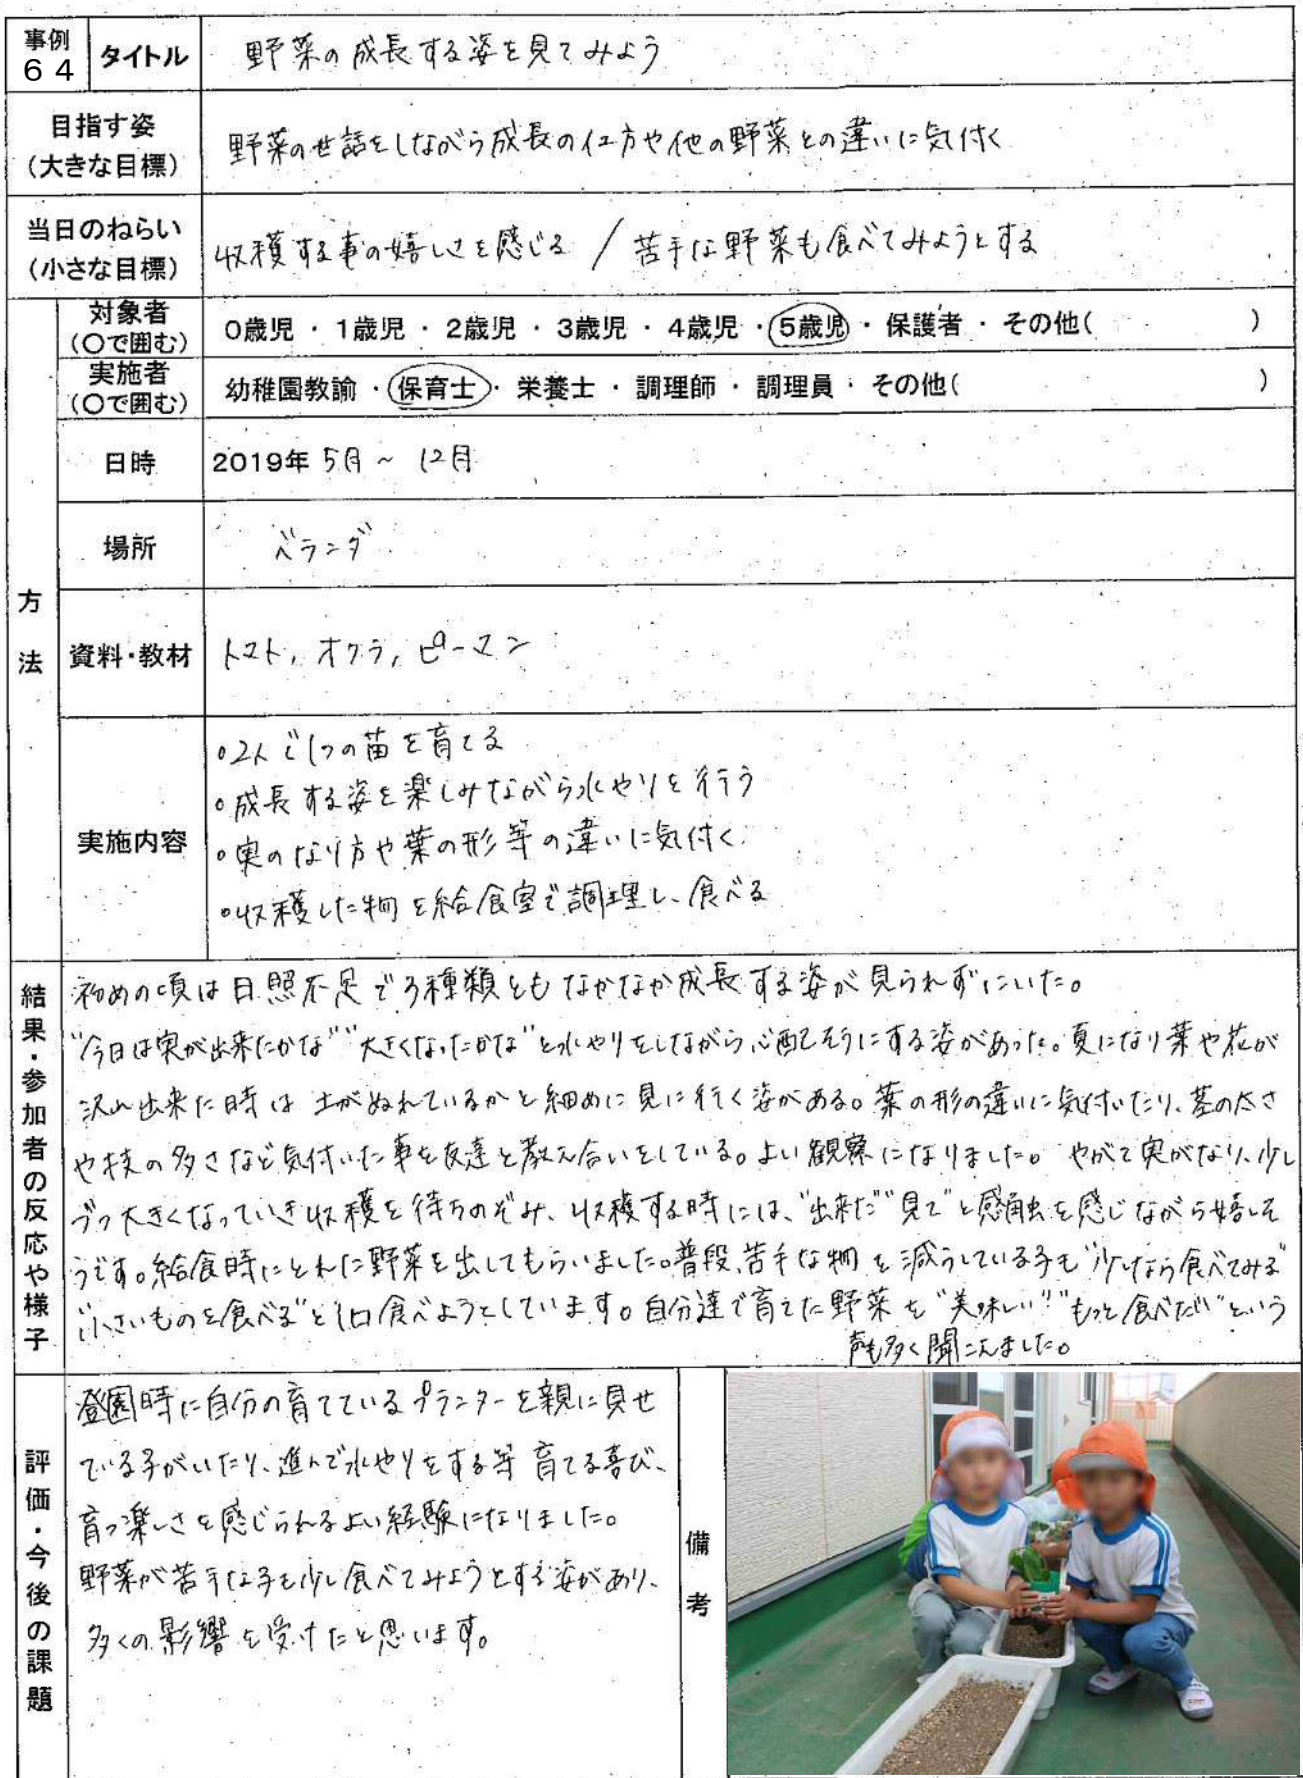 事例 64 タイトル 野菜の成長する姿を見てみよう
目指す姿
(大きな目標) 野菜の世話をしながら成長の仕方や他の野菜との違いに気付く
当日のねらい
(小さな目標) 収穫する事の嬉しさを感じる / 苦手な野菜も食べてみようとする
方法
対象者
(〇で囲む) 0歳児 ・ 1歳児 ・ 2歳児 ・ 3歳児 ・ 4歳児 ・ 5歳児 ・ 保護者 ・ その他( )
実施者
(〇で囲む) 幼稚園教諭 ・ 保育士 ・ 栄養士 ・ 調理師 ・ 調理員 ・ その他( )
日時 2019年 5月 ~ 12月
場所 ベランダ
資料・教材 トマト, オクラ, ピーマン
実施内容
○2人で1つの苗を育てる
○成長する姿を楽しみながら水やりを行う
○実のなり方や葉の形等の違いに気付く
○収穫した物を給食室で調理し、食べる
結果・参加者の反応や様子
初めの頃は日照不足で3種類ともなかなか成長する姿が見られずにいた。
"今日は実が出来たかな" "大きくなったかな"と水やりをしながら心配そうにする姿があった。夏になり葉や花が
沢山出来た時は土がぬれているかと細めに見に行く姿がある。葉の形の違いに気付いたり、茎の太さ
や枝の多さなど気付いた事を友達と教え合いをしている。よい観察になりました。やがて実がなり、少し
づつ大きくなっていき収穫を待ちのぞみ、収穫する時には、"出来た" "見て"と感触を感じながら嬉しそ
うです。給食時にとれた野菜を出してもらいました。普段、苦手な物を減らしている子も"少しなら食べてみる"
"小さいものを食べる"と1口食べようとしています。自分達で育てた野菜を"美味しい" "もっと食べたい"という
声も多く聞こえました。
評価・今後の課題
登園時に自分の育てているプランターを親に見せ
ている子がいたり、進んで水やりをする等 育てる喜び、
育つ楽しさを感じられるよい経験になりました。
野菜が苦手な子も少し食べてみようとする姿があり、
多くの影響を受けたと思います。
備考